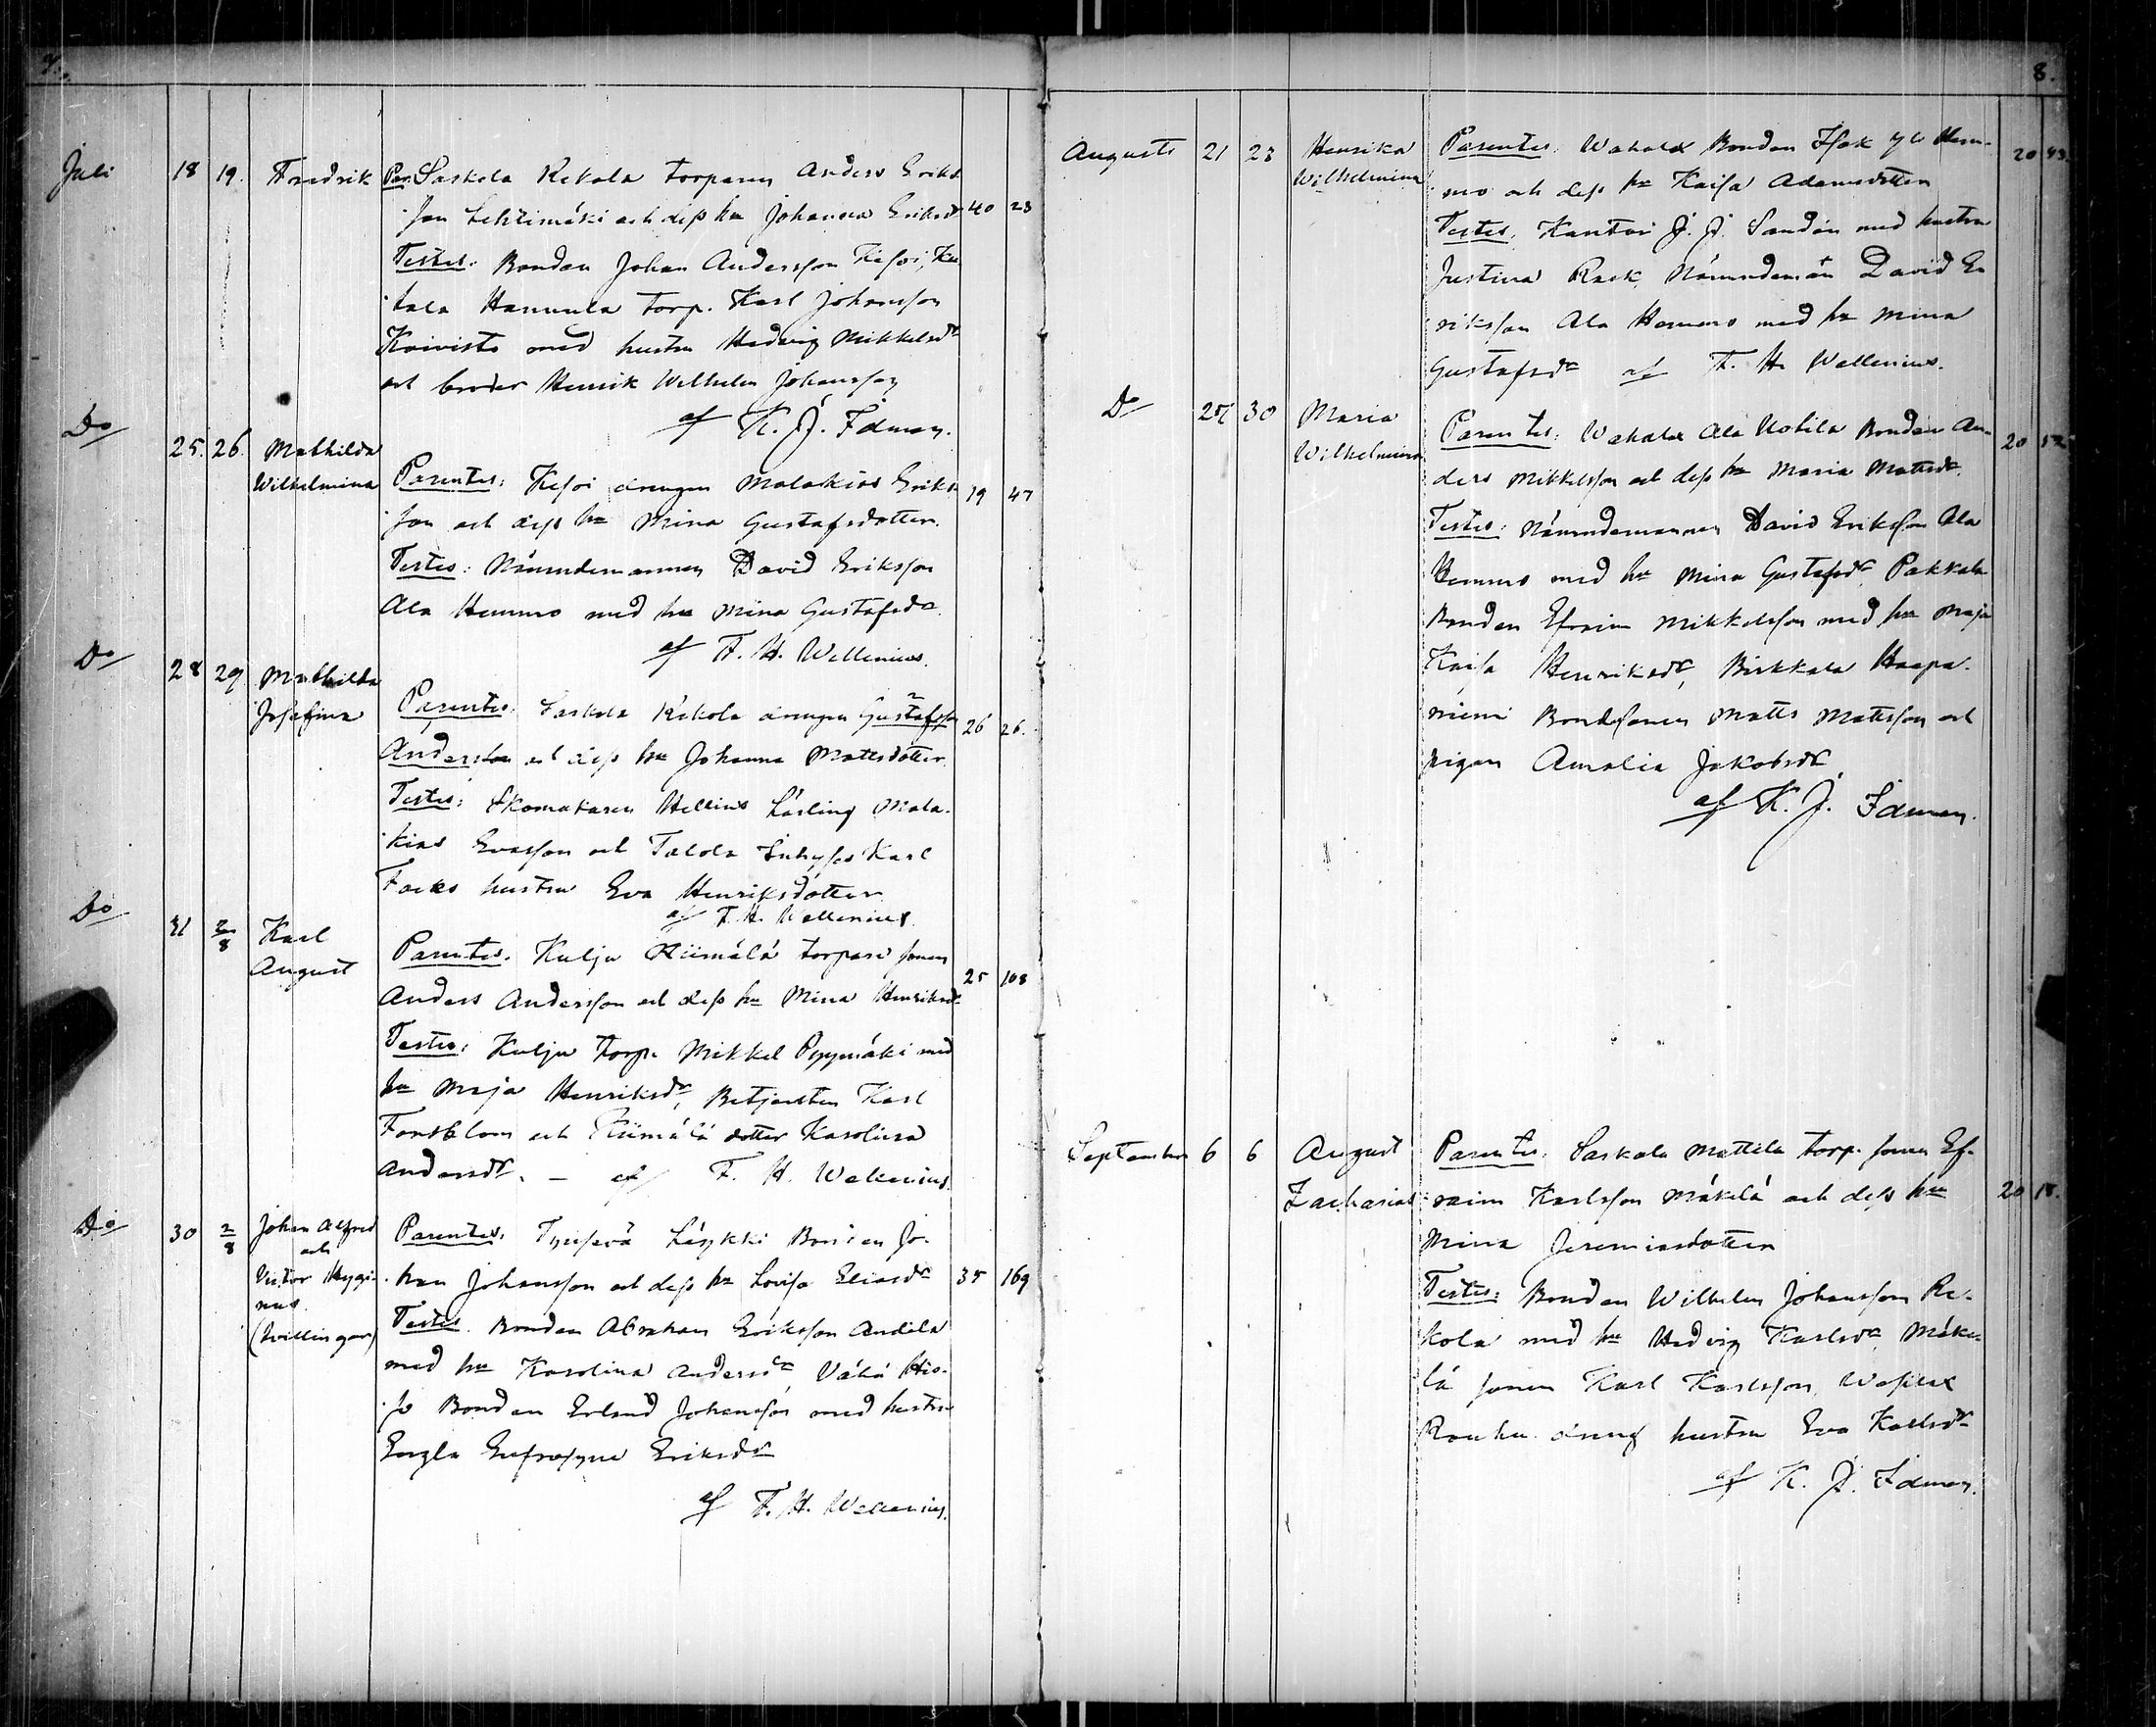 7.
Juli 18 19. Fredrik Par. Saskela Rekola torparen Anders Eriks
son Lehtimäki och dess hu Johanna Eriksdr 40 23
Testes: Bonden Johan Andersson Kesoi,
tala Hannula torp. Karl Johansson
Koivisto med hustru Hedvig Mikkelsdr
och broder Henrik Wilhelm Johansson
af K. J. Idman.
Do 25. 26. Mathilda
Wilhelmina Parentes: Kesoi drengen Malakias Eriks 19 47
son och dess hu Mina Gustafsdotter.
Testes: Nämndemannen David Eriksson
Ala Hemmo med hu Mina Gustafsdr.
af F. H. Wellenius.
Do 28 29 Mathilda
Josefina Parentes: Saskela Rekola drengen Gustafsson 26 26.
Andersson och dess hu Johanna Mattsdotter.
Testes: Skomakaren Hellius Lärling Mala-
kias Evasson och Talola Inhyses Karl
Facks hustru Eva Henriksdotter
af F. H. Wellenius.
Do 31 2/8 Karl
August Parentes. Kulju Riimälä torpare sonen 25 108
Anders Andersson och dess hu Mina Henriksdr
Testes: Kulju torp. Mikkel Pyymäki med
hu Maja Henriksdr, Betjenten Karl
Forsblom och Riimälä dotter Karolina
Andersdr. — af F. H. Wellenius.
Do 30 2/8 Johan Alfred
och
Victor Hygi-
nus.
(Tvillingar)
Parentes: Tyrisevä Läykki Bonden Jo-
han Johansson och dess hu Lovisa Eliasdr 35 169
Testes. Bonden Abraham Eriksson Andila
med hu Karolina Andersdr Vähä Hio-
jo Bonden Erland Johansson med hustru
Engla Eufrosyne Eriksdr
af F. H. Wellenius.
8.
Augusti 21 23 Henrika
Wilhelmina Parentes: Wahala Bonden Isak Yli Hem- 20 43.
mo och dess hu Kaisa Adamsdotter
Testes. Kantor J. J. Sandén med hustru
Justina Rask, Nämndemän David E-
riksson Ala Hemmo med hu Mina
Gustafsdr af F. H. Wellenius.
Do 27 30 Maria
Wilhelmina Parentes: Wahala Ala Uotila Bonden An- 20 52
ders Mikkelsson och dess hu Maria Mattsdr.
Testes: Nämndemannen David Eriksson Ala
Hemmo med hu Mina Gustafsdr Pakkala
Bonden Efraim Mikkelsson med hu Maja
Kaisa Henriksdr, Birkkala Haapa-
niemi Bondesonen Matts Mattsson och
pigan Amalia Jakobsdr.
af K. J. Idman.
September 6 6 August
Zacharias Parentes. Saskela Mattila torp. sonen Ef-
raim Karlsson Mäkilä och dess hu 20 18.
Mina Jeremiasdotter
Testes: Bonden Wilhelm Johansson Re-
kola med hu Hedvig Karlsdr, Mäki-
lä sonen Karl Karlsson,
Rauhu dreng hustru Eva Karlsdr
af K. J. Idman.